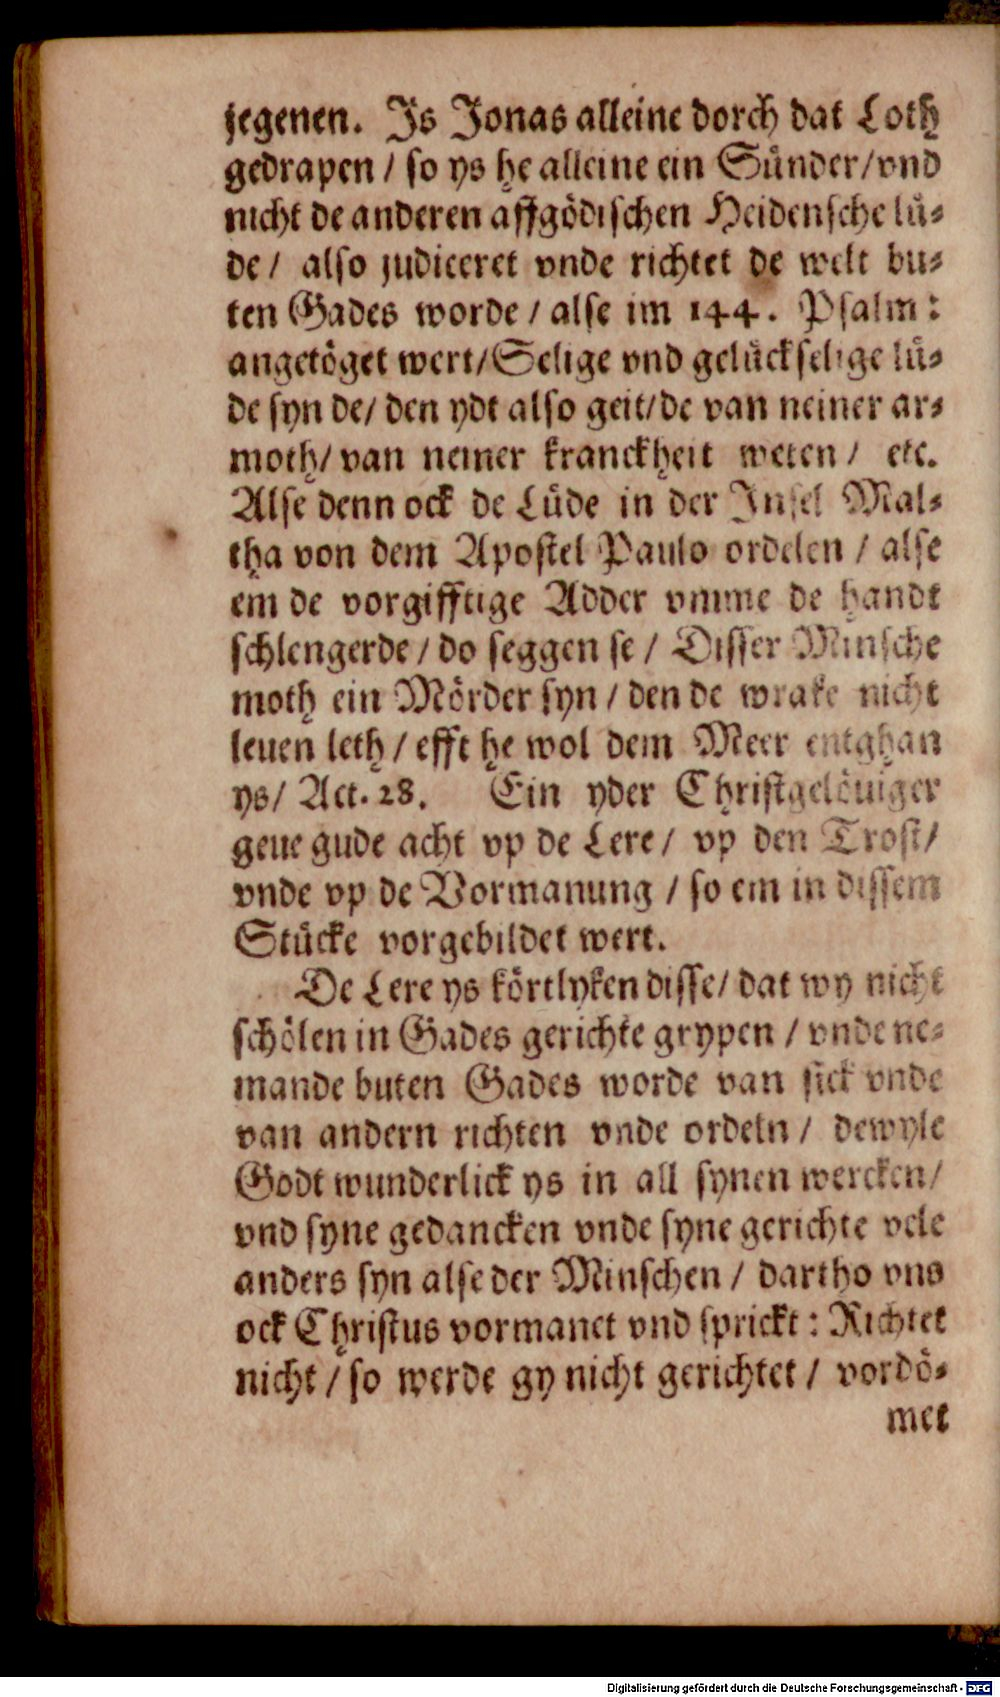 jegenen. Is Jonas alleine dorch dat Loth
gedrapen / so ys he alleine ein Sünder/vnd
nicht de anderen affgödischen Heidensche lü-
de / also judiceret vnde richtet de welt bu-
ten Gades worde / alse im 144. Psalm:
angetöget wert/Selige vnd gelückselige lü-
de syn de/ den ydt also geit/de van neiner ar-
moth/ van neiner kranckheit weten / etc.
Alse denn ock de Lüde in der Insel Mal-
tha von dem Apostel Paulo ordelen / alse
em de vorgifftige Adder vmme de handt
schlengerde / do seggen se / Disser Minsche
moth ein Mörder syn / den de wrake nicht
leuen leth / efft he wol dem Meer entghan
ys/ Act. 28. Ein yder Christgelöuiger
geue gude acht vp de Lere / vp den Trost/
vnde vp de Vormanung / so em in dissem
Stücke vorgebildet wert.
De Lere ys körtlyken disse/ dat wy nicht
schölen in Gades gerichte grypen / vnde ne-
mande buten Gades worde van sick vnde
van andern richten vnde ordeln / dewyle
Godt wunderlick ys in all synen wercken/
vnd syne gedancken vnde syne gerichte vele
anders syn alse der Minschen / dartho vns
ock Christus vormanet vnd sprickt: Richtet
nicht / so werde gy nicht gerichtet / vordö-
met
Digitalisierung gefördert durch die Deutsche Forschungsgemeinschaft - DFG